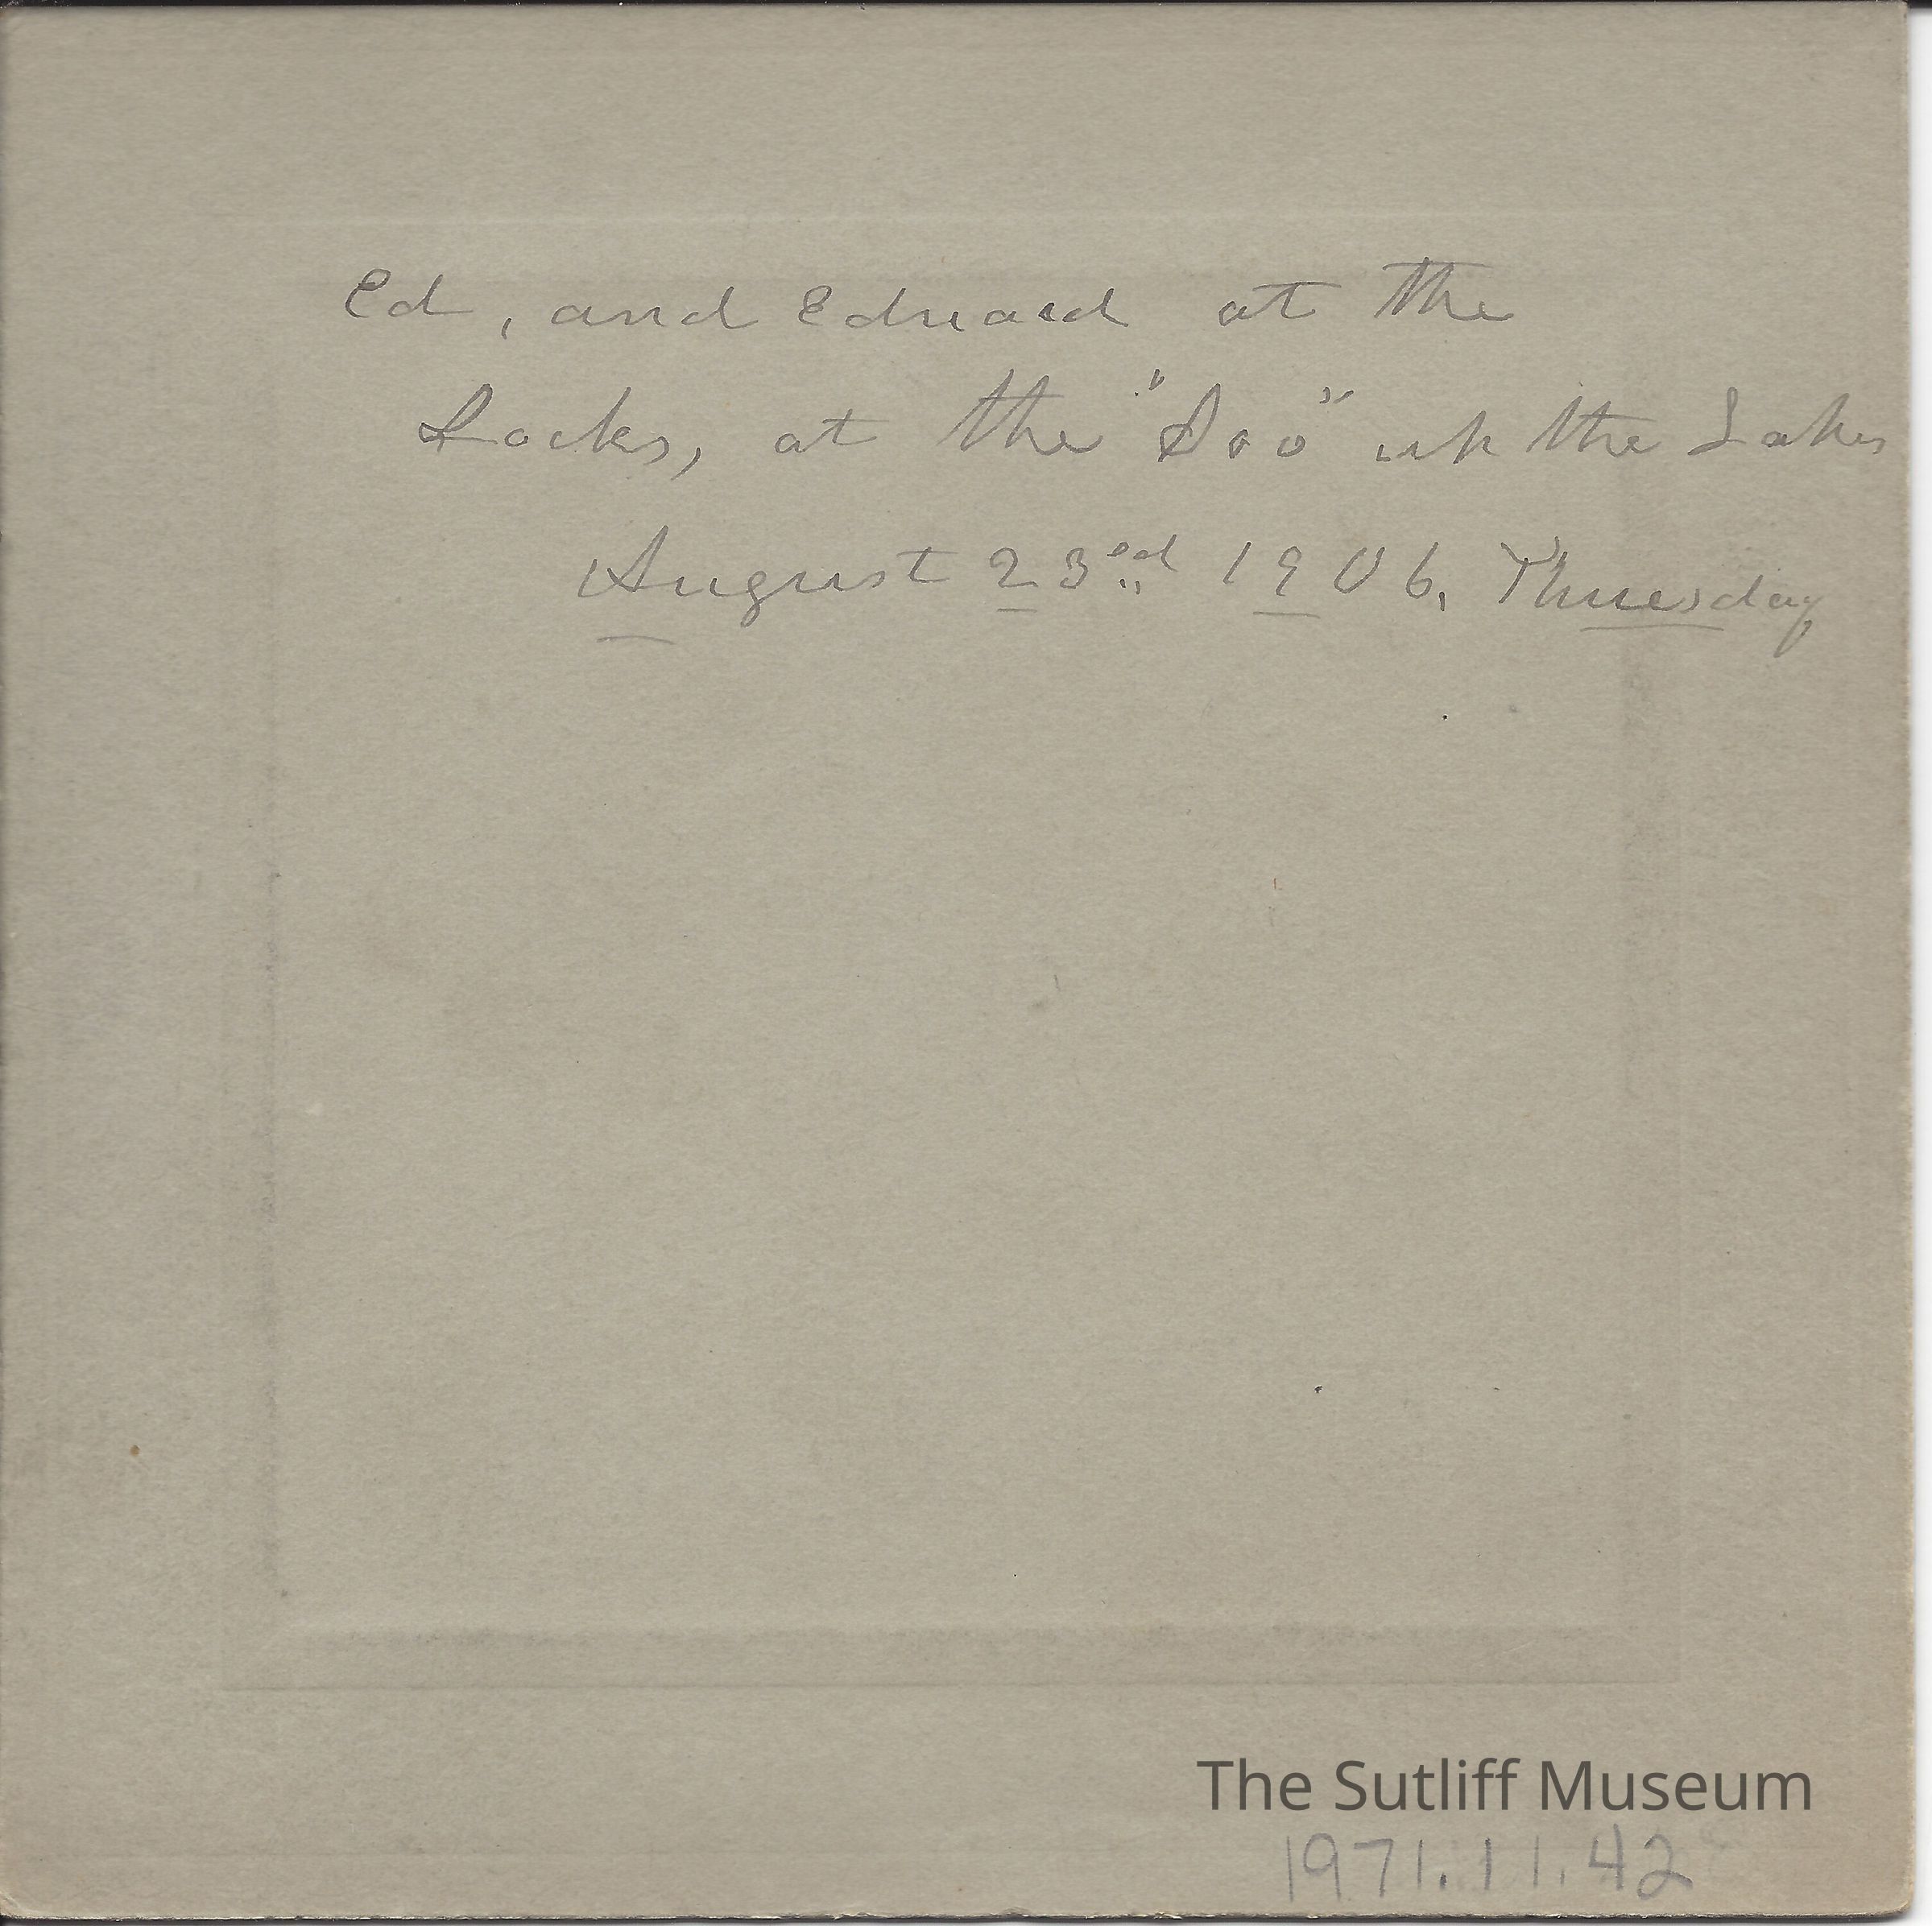 Ed, and Edward at the
Locks, at the "Soo" up the Lakes
August 23rd 1906, Thursday
The Sutliff Museum
1971.11.42